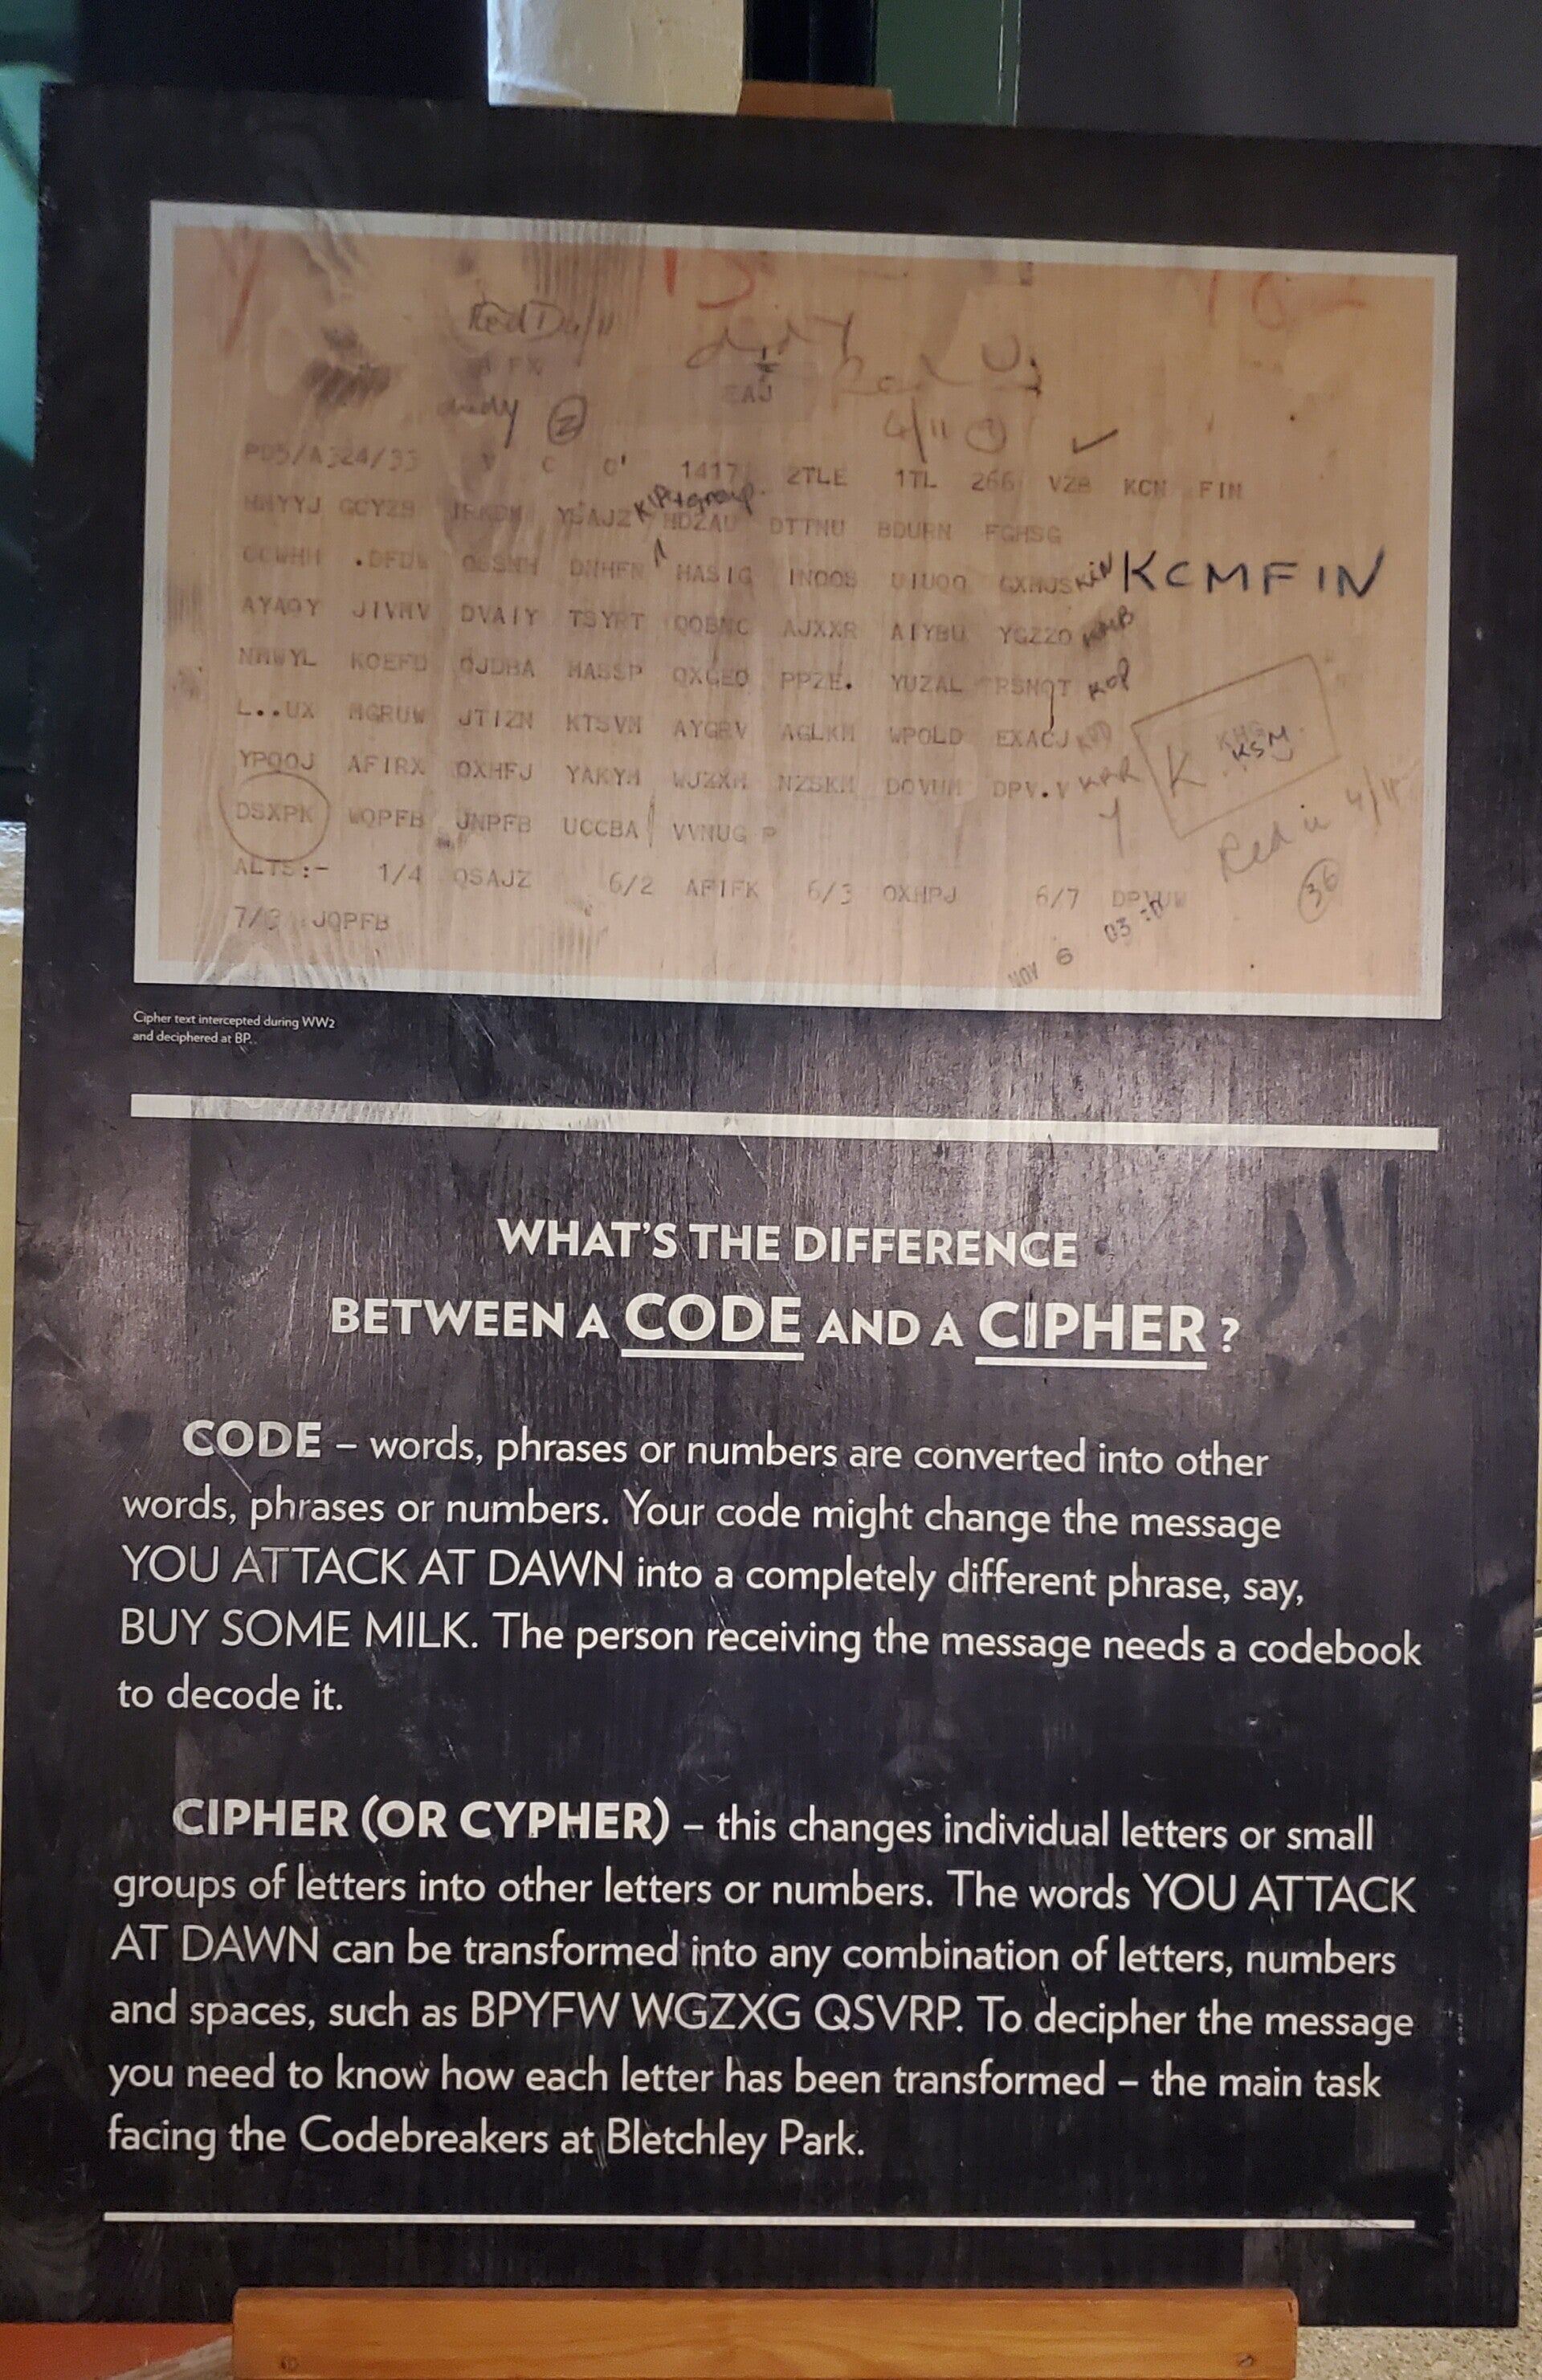 dirty
4/11
P05/A324/33 V C C' 1417 2TLE 1TL 266 VZB KCN FIN
GCYZB NDZAU DTTNU BDURN FGHSG
CCWHH DNHFN HASIG INOOS UIUQO KCMFIN
AYAQY JIVMV DVAIY TSYRT OOBNC AJXXR AIYBU YGZZO
NMWYL KOEFD OJDBA MASSP QXGEO PPZE. YUZAL PSNQT KOP
L..UX MGRUW JTIZN KTSVM AYGRV AGLKM WPOLD EXACJ
YPQOJ AFIRX OXHFJ YAKYM WJZXM NZSKM DOVUM DPV.V K KSM
DSXPK WQPFB JNPFB UCCBA VVNUG P
ALTS:- 1/4 QSAJZ 6/2 AFIFK 6/3 OXHPJ 6/7
7/3 JQPFB
36
NOV 6 03
Cipher text intercepted during WW2
and deciphered at BP.
WHAT'S THE DIFFERENCE
BETWEEN A CODE AND A CIPHER ?
CODE – words, phrases or numbers are converted into other
words, phrases or numbers. Your code might change the message
YOU ATTACK AT DAWN into a completely different phrase, say,
BUY SOME MILK. The person receiving the message needs a codebook
to decode it.
CIPHER (OR CYPHER) – this changes individual letters or small
groups of letters into other letters or numbers. The words YOU ATTACK
AT DAWN can be transformed into any combination of letters, numbers
and spaces, such as BPYFW WGZXG QSVRP. To decipher the message
you need to know how each letter has been transformed – the main task
facing the Codebreakers at Bletchley Park.